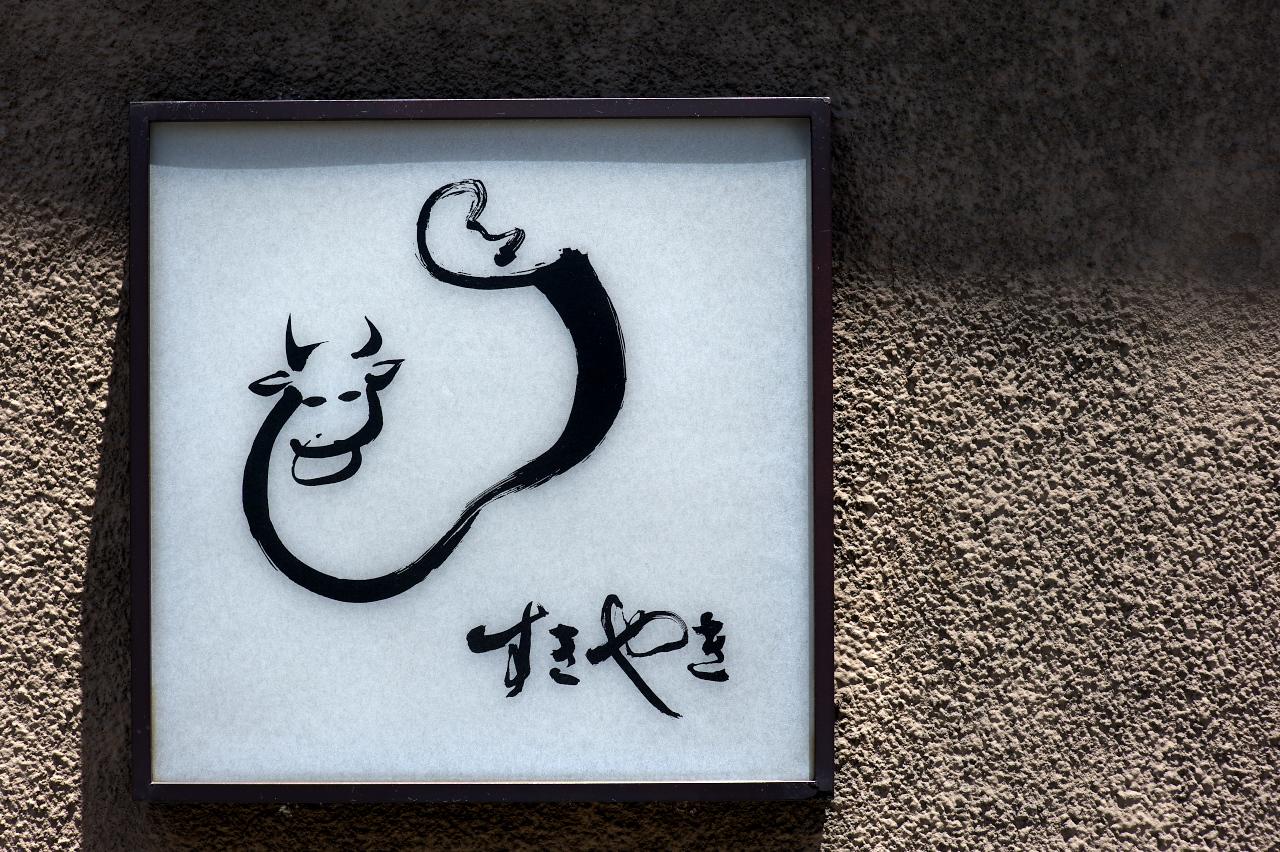 すきやき